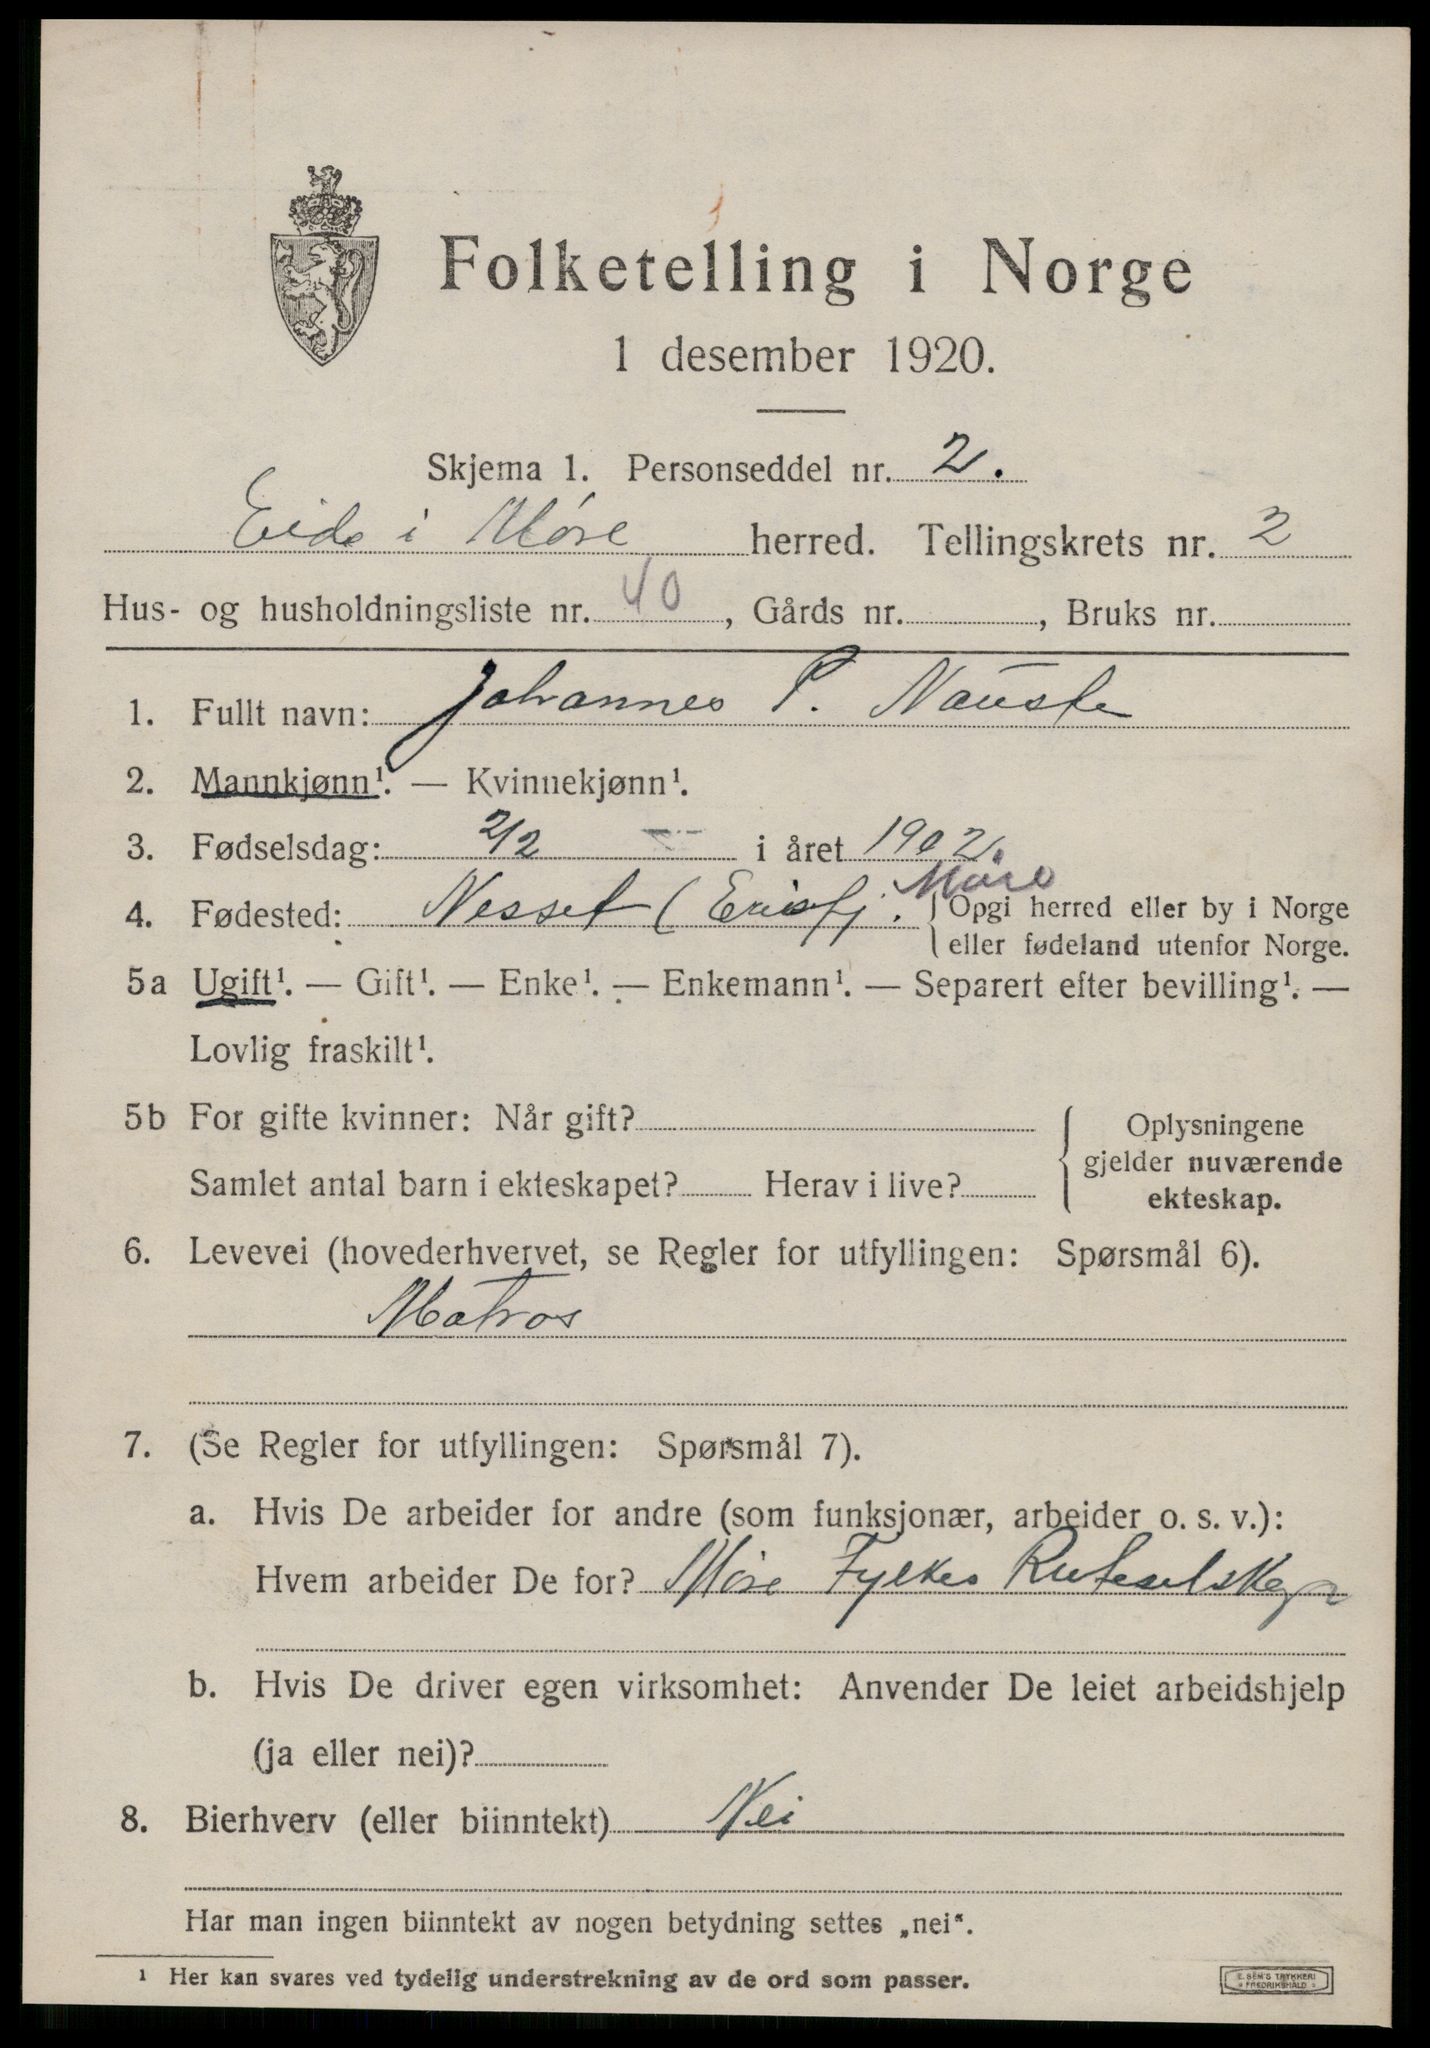 Folketelling i Norge
1 desember 1920.
Skjema 1. Personseddel nr. 2.
Eide i Møre herred. Tellingskrets nr. 2
Hus- og husholdningsliste nr. 40, Gårds nr. , Bruks nr.
1. Fullt navn: Johannes P. Nauste
2. Mannkjønn¹. — Kvinnekjønn¹.
3. Fødselsdag: 2/2 i året 1902.
Møre
4. Fødested: Nesset (Erisfj. Opgi herred eller by i Norge
eller fødeland utenfor Norge.
5a Ugift¹. — Gift¹. — Enke¹. — Enkemann¹. — Separert efter bevilling¹. —
Lovlig fraskilt¹.
5b For gifte kvinner: Når gift?
Samlet antal barn i ekteskapet? Herav i live?
Oplysningene
gjelder nuværende
ekteskap.
6. Levevei (hovederhvervet, se Regler for utfyllingen: Spørsmål 6).
Matros
7. (Se Regler for utfyllingen: Spørsmål 7).
a. Hvis De arbeider for andre (som funksjonær, arbeider o. s. v.):
Hvem arbeider De for? Møre Fylkes Ruteselskap
b. Hvis De driver egen virksomhet: Anvender De leiet arbeidshjelp
(ja eller nei)?
8. Bierhverv (eller biinntekt) Nei
Har man ingen biinntekt av nogen betydning settes „nei“.
¹ Her kan svares ved tydelig understrekning av de ord som passer.
E. SEM'S TRYKKERI
FREDRIKSHALD